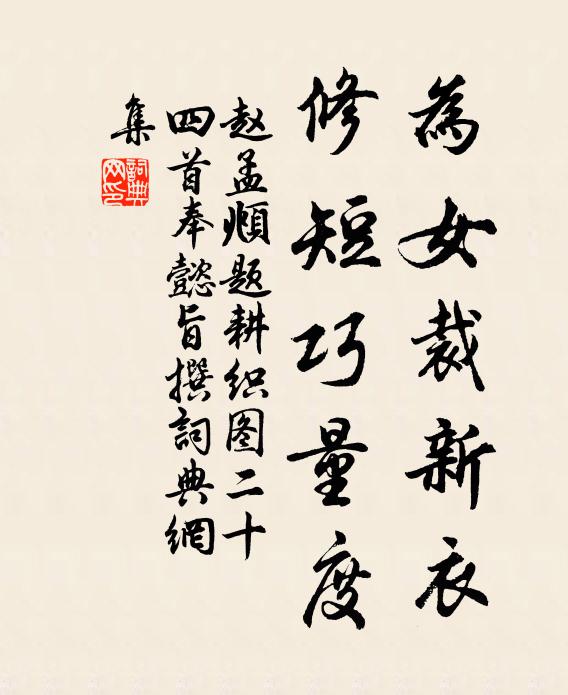 為女裁新衣
修短巧量度
赵孟頫题耕织图二十
四首奉懿旨撰詞典網
集
詞典網印